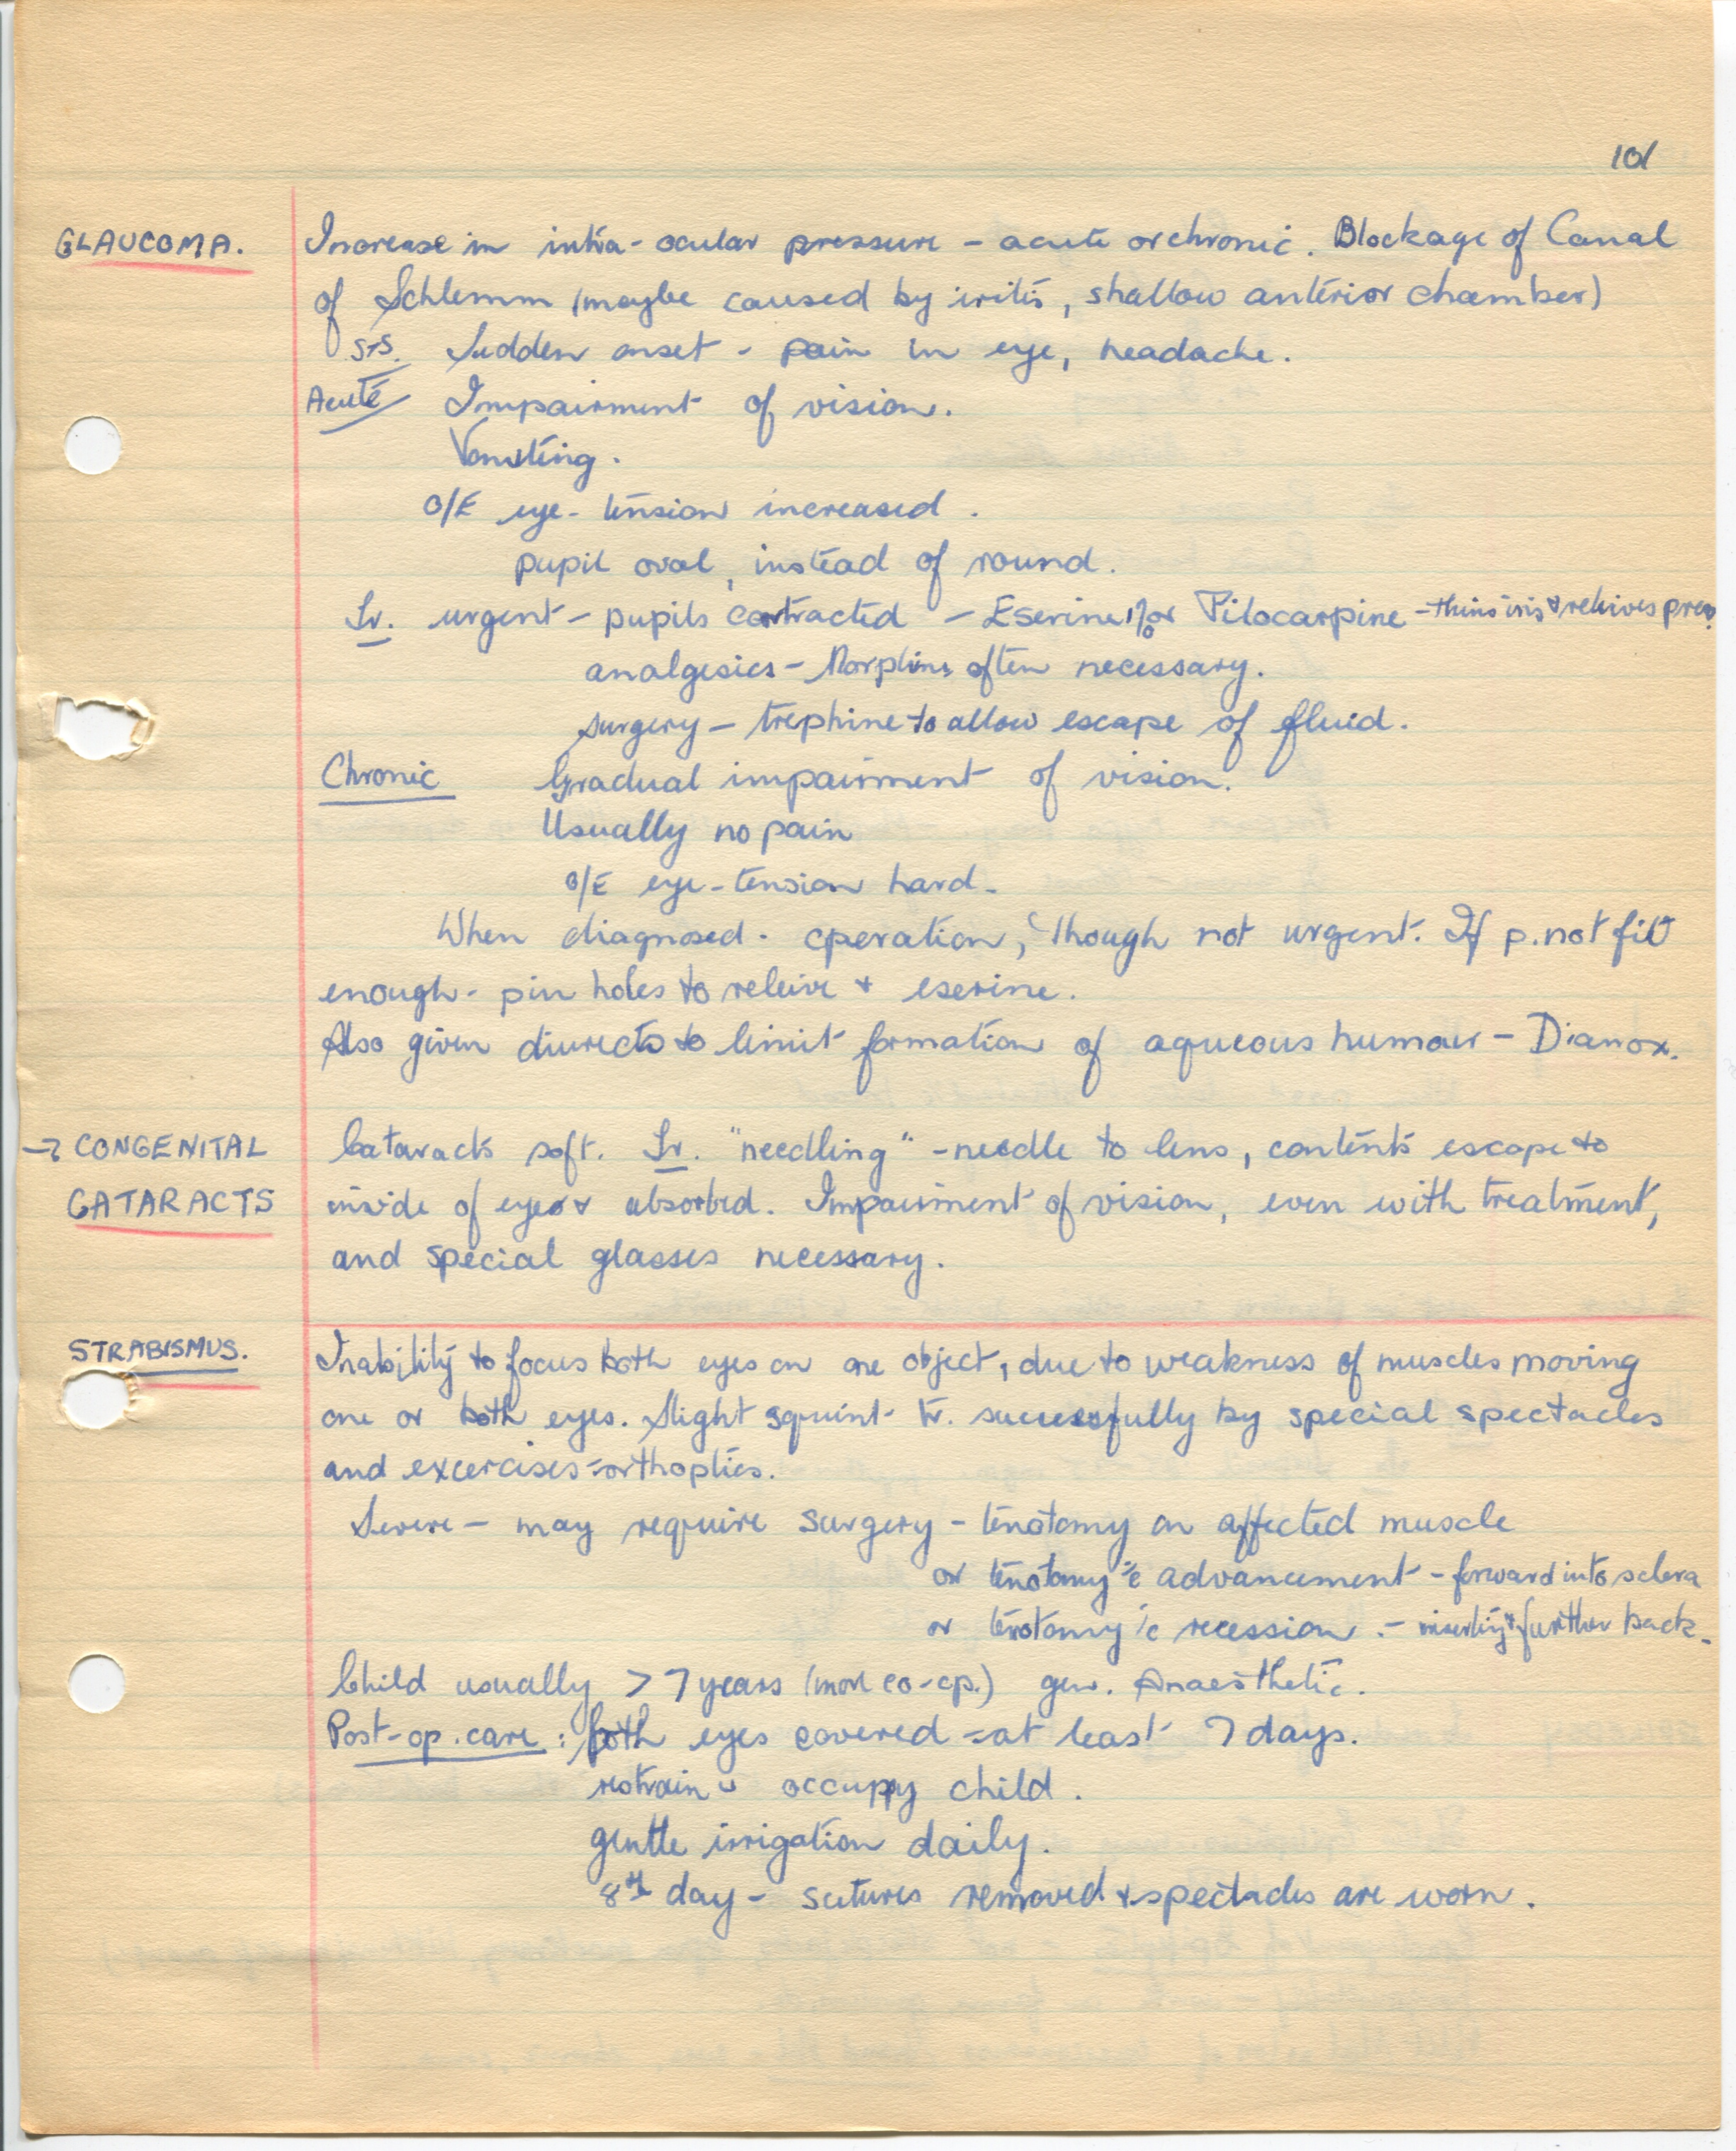 101
GLAUCOMA. Increase in intra-ocular pressure - acute or chronic. Blockage of Canal
of Schlemm (maybe caused by iritis, shallow anterior chamber)
S+S. Sudden onset - pain in eye, headache.
Acute Impairment of vision.
Vomiting.
O/E eye - tension increased.
pupil oval, instead of round.
Tr. urgent - pupils contracted - Eserine 1% or Pilocarpine - thins iris & releives press.
analgesics - Morphine often necessary.
surgery - trephine to allow escape of fluid.
Chronic Gradual impairment of vision.
Usually no pain
O/E eye - tension hard.
When diagnosed - operation, though not urgent. If p. not fit
enough - pin holes to releive & eserine.
Also given diurects to limit formation of aqueous humour - Dianox.
→ CONGENITAL Cataracts soft. Tr. "needling" - needle to lens, contents escape to
CATARACTS inside of eyes & absorbed. Impairment of vision, even with treatment,
and special glasses necessary.
STRABISMUS. Inability to focus both eyes on one object, due to weakness of muscles moving
one or both eyes. Slight squint tr. successfully by special spectacles
and excercises = orthoptics.
Severe - may require surgery - tenotomy on affected muscle
or tenotomy c̄ advancement - forward into sclera
or tenotomy c̄ recession. - further back.
Child usually > 7 years (more co-op.) gen. Anaesthetic.
Post-op. care: both eyes covered - at least 7 days.
restrain & occupy child.
gentle irrigation daily.
8th day - sutures removed & spectacles are worn.